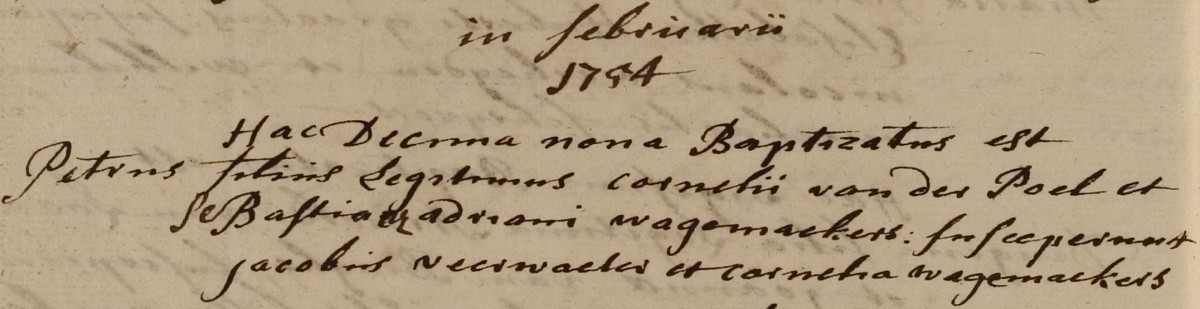 in februarii
1754
Hac Decima nona Baptizatus est
Petrus filius Legitimus cornelii van der Poel et
seBastianæ adriani wagemaekers: susceperunt
jacobus veerwaeter et cornelia wagemaekers